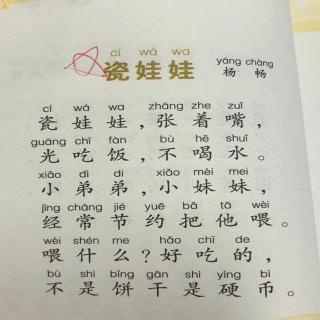 cí wá wa
瓷娃娃
yáng chàng
杨畅
cí wá wa zhāng zhe zuǐ
瓷娃娃，张着嘴，
guāng chī fàn bù hē shuǐ
光吃饭，不喝水。
xiǎo dì di xiǎo mèi mei
小弟弟，小妹妹，
jīng cháng jié yuē bǎ tā wèi
经常节约把他喂。
wèi shén me hǎo chī de
喂什么？好吃的，
bù shì bǐng gān shì yìng bì
不是饼干是硬币。